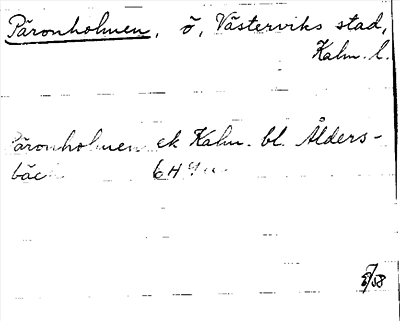 Päronholmen, ö, Västerviks stad,
Kalm. l.
Päronholmen ek Kalm. bl. Ålders-
bäck